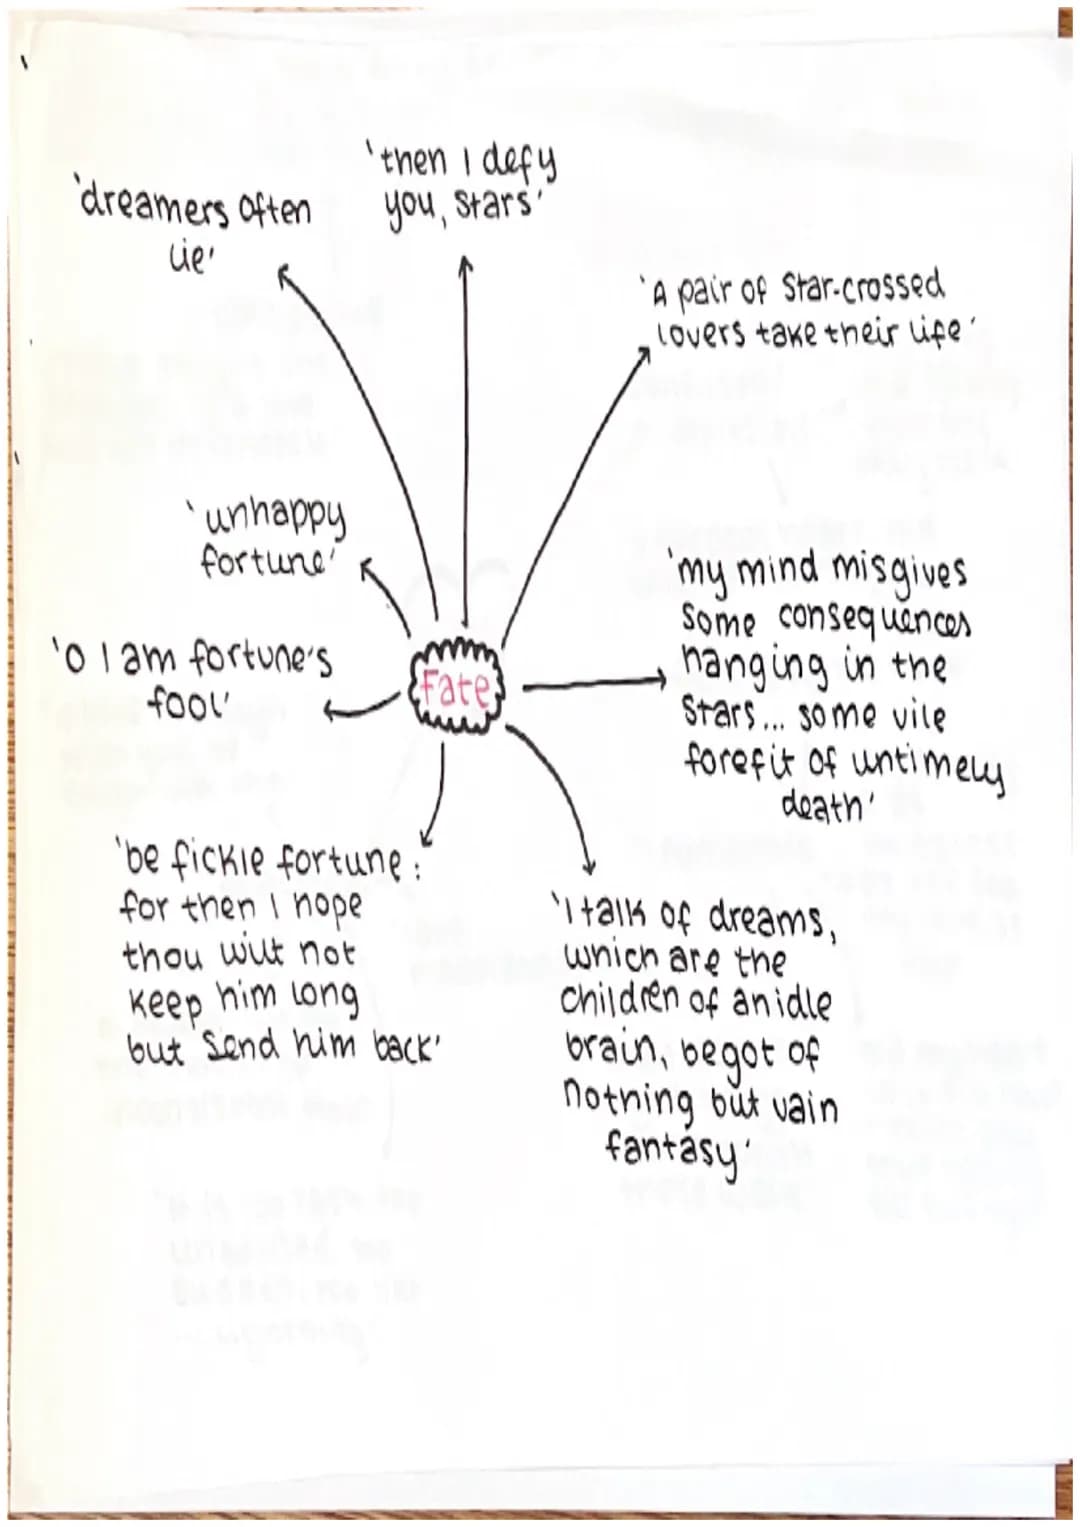 'then I defy
you, stars'
'dreamers often
lie'
'A pair of Star-crossed
lovers take their life'
'unhappy
fortune'
'my mind misgives
Some consequences
hanging in the
Stars... some vile
forefit of untimely
death'
'O I am fortune's
fool'
Fate
'be fickle fortune:
for then I hope
thou wilt not
keep him long
but Send him back'
'I talk of dreams,
which are the
children of an idle
brain, begot of
nothing but vain
fantasy'